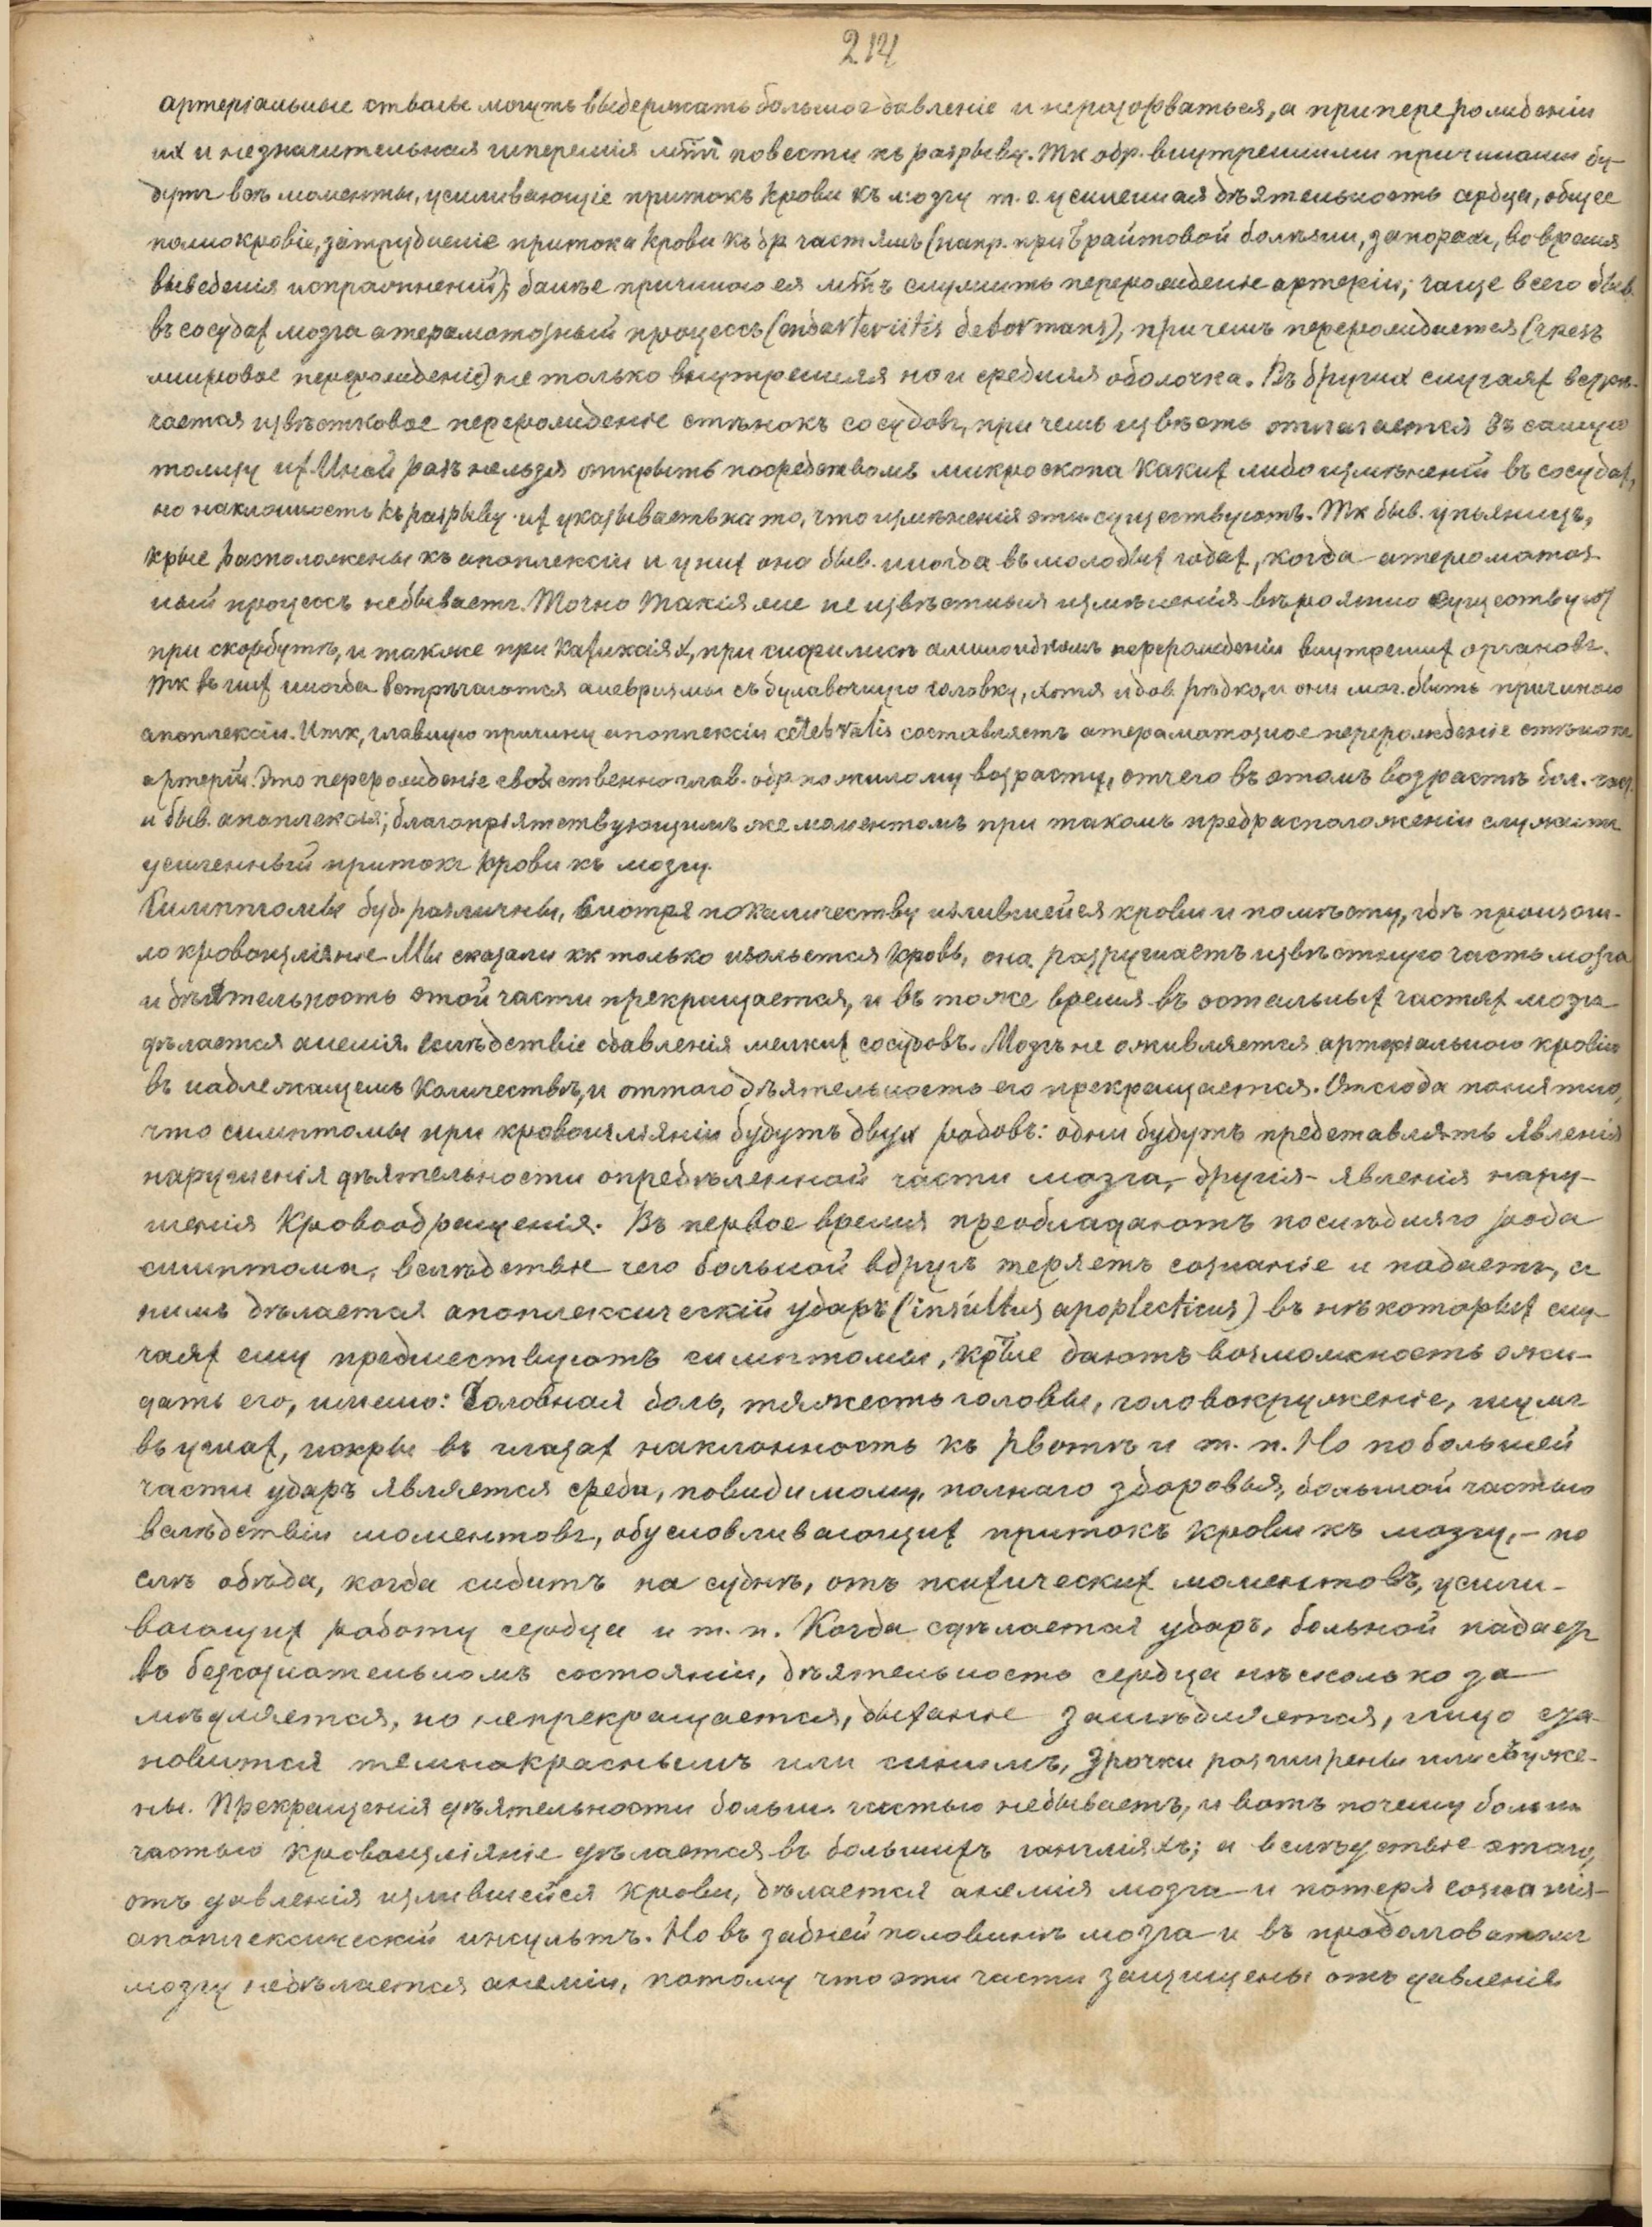 214
артеріальные стволы могутъ выдержать большое давленіе и неразорваться, а приперерожденіи
их и незначительная гиперемія м͠тъ повести къ разрыву. Тк обр. внутренними причинами бу-
дутъ всѣ моменты, усиливающіе притокъ крови къ мозгу т. е. усиленная дѣятельность сердца, общее
полнокровіе, затрудненіе притока крови къ др частямъ (напр. при Брайтовой болѣзни, запорах, во время
выведенія испражненій); далѣе причиною ея м͠тъ служить перерожденіе артеріи; чаще всего быв.
въ сосудах мозга атероматозный процессъ (endarteriitis deformans), при чемъ перерождается (чрезъ
жировое перерожденіе) не только внутренняя но и средняя оболочка. Въ других случаях встрѣ-
чается известковое перерожденіе стѣнокъ сосудовъ, при чемъ известь отлагается въ самую
толщу их. Иной разъ нельзя открыть посредствомъ микроскопа каких либо измѣненій въ сосудах,
но наклонность къ разрыву их указываетъ на то, что измѣненія эти существуютъ. Тк быв. у пьяницъ,
крые расположены къ апоплексіи и у них она быв. иногда въ молодых годах, когда атероматоз
ный процессъ небываетъ. Точно такія же неизвѣстныя измѣненія вѣроятно существуют
при скорбутѣ, и также при кахихіях, при сифилисѣ амилоидномъ перерожденіи внутренних органовъ.
Тк въ них иногда встрѣчаются аневризмы съ булавочную головку, хотя и дов. рѣдко, и они мог. быть причиною
апоплексіи. Итк, главную причину апоплексіи cerebralis составляетъ атероматозное перерожденіе стѣнокъ
артерій. Это перерожденіе свойственно глав. обр пожилому возрасту, отчего въ этомъ возрастѣ бол. част.
и быв. апоплексія; благопріятствующимъ же моментомъ при такомъ предрасположеніи служитъ
усиленный притокъ крови къ мозгу.
Симптомы буд. различны, смотря по количеству излившейся крови и помѣсту, гдѣ произош-
ло кровоизліяніе. Мы сказали кк только изольется кровь, она разрушаетъ извѣстную часть мозга
и дѣятельность этой части прекращается, и въ тоже время въ остальных частях мозга
дѣлается анемія вслѣдствіе сдавленія мелких сосудовъ. Мозгъ не оживляется артеріальною кровію
въ надлежащемъ количествѣ, и оттого дѣятельность его прекращается. Отсюда понятно,
что симптомы при кровоизліяніи будутъ двух родовъ: одни будутъ представлять явленія
нарушенія дѣятельности опредѣленной части мозга, другія - явленія нару-
шенія кровообращенія. Въ первое время преобладаютъ послѣдняго рода
симптома, вслѣдствіе чего больной вдругъ теряетъ сознаніе и падаетъ, съ
нимъ дѣлается апоплексическій ударъ (insultus apoplecticus) въ нѣкоторых слу-
чаях ему предшествуютъ симптомы, крые даютъ возможность ожи-
дать его, имено: Головная боль, тяжесть головы, головокруженіе, шумъ
въ ушах, искры въ глазах наклонность къ рвотѣ и т. п. Но по большей
части ударъ является среди, повидимому, полнаго здоровья, большой частью
вслѣдствіи моментовъ, обусловливающих притокъ крови къ мозгу, - по
слѣ обѣда, когда сидитъ на суднѣ, отъ психических моментовъ, усили-
вающих работу сердца и т. п. Когда сдѣлается ударъ, больной падает
въ безсознательномъ состояніи, дѣятельность сердца нѣсколько за
медляется, но непрекращается, дыханіе замѣдляется, лицо ста-
новится темнокраснымъ или синимъ, зрачки расширены или съуже-
ны. Прекращенія дѣятельности больш. частью небываетъ, и вотъ почему больш.
частью кровоизліяніе дѣлается въ большихъ гангліяхъ; и вслѣдствіе этаго,
отъ давленія излившейся крови, дѣлается анемія мозга и потеря сознанія -
апоплексическій инсультъ. Но въ задней половинѣ мозга и въ продолговатомъ
мозгу недѣлается анеміи, потому что эти части защищены отъ давленія